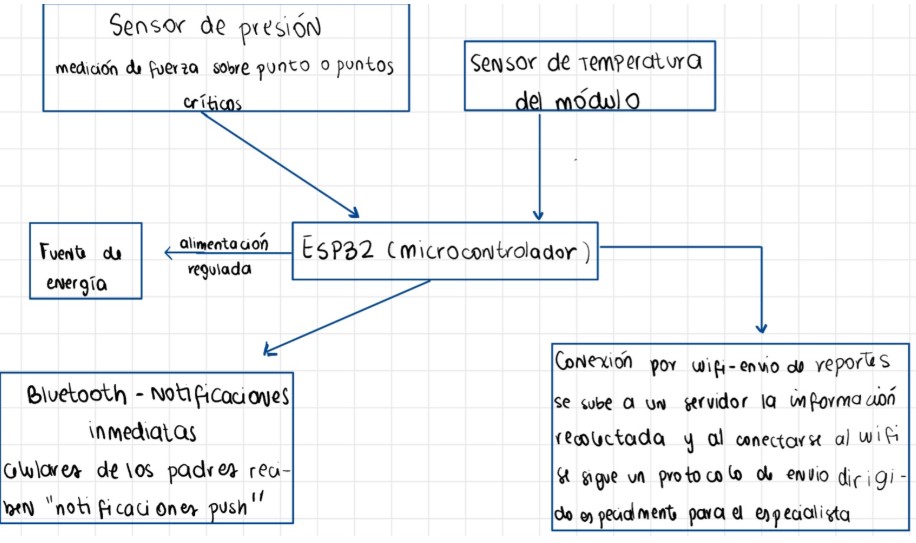 Sensor de presión
medición de fuerza sobre punto o puntos
críticos
Sensor de Temperatura
del módulo
Fuente de
energía
alimentación
regulada
ESP32 (microcontrolador)
Bluetooth - Notificaciones
inmediatas
celulares de los padres reci-
ben "notificaciones push"
Conexión por wifi-envio de reportes
se sube a un servidor la información
recolectada y al conectarse al wifi
se sigue un protocolo de envio dirigi-
do especialmente para el especialista